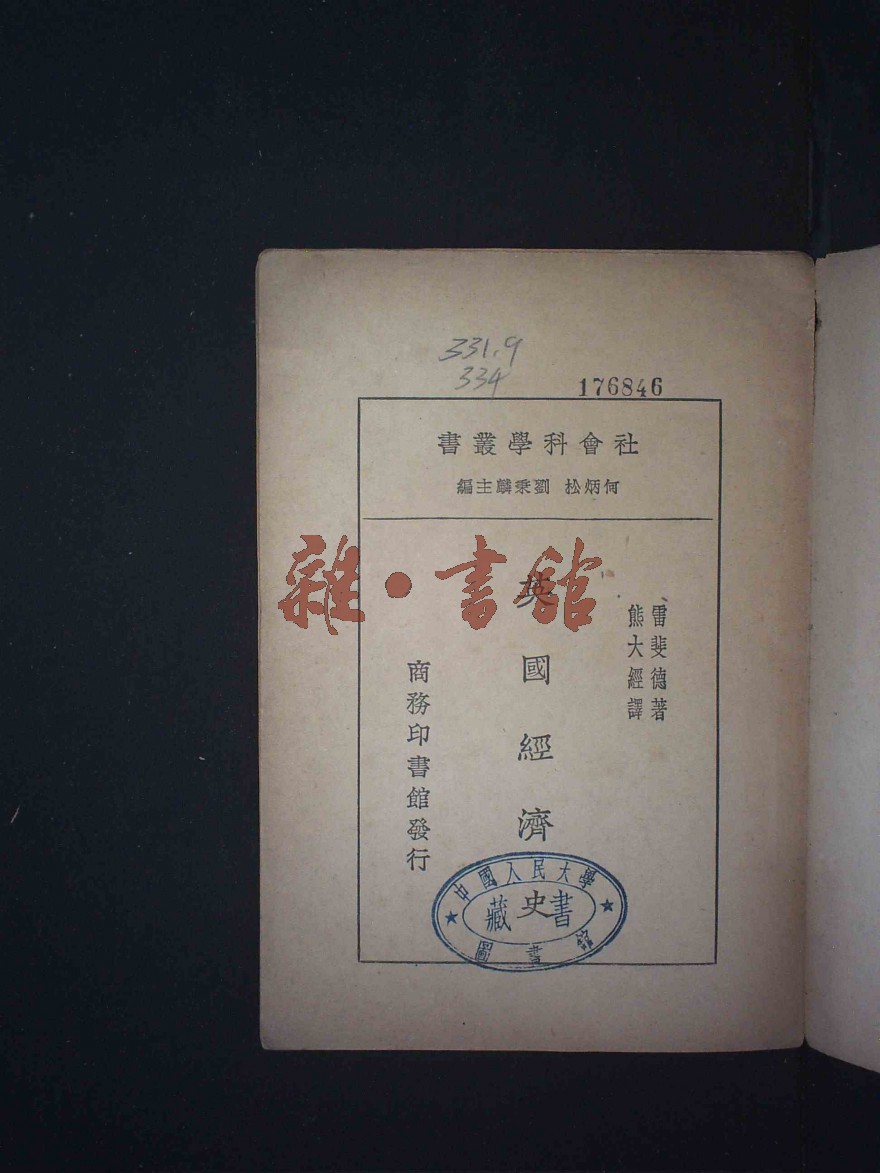 331.9
334
176846
社會科學叢書
何炳松 劉秉麟主編
雷斐德著
熊大經譯
英國經濟史
商務印書館發行
中國人民大學
藏書
圖書館
雜·書館